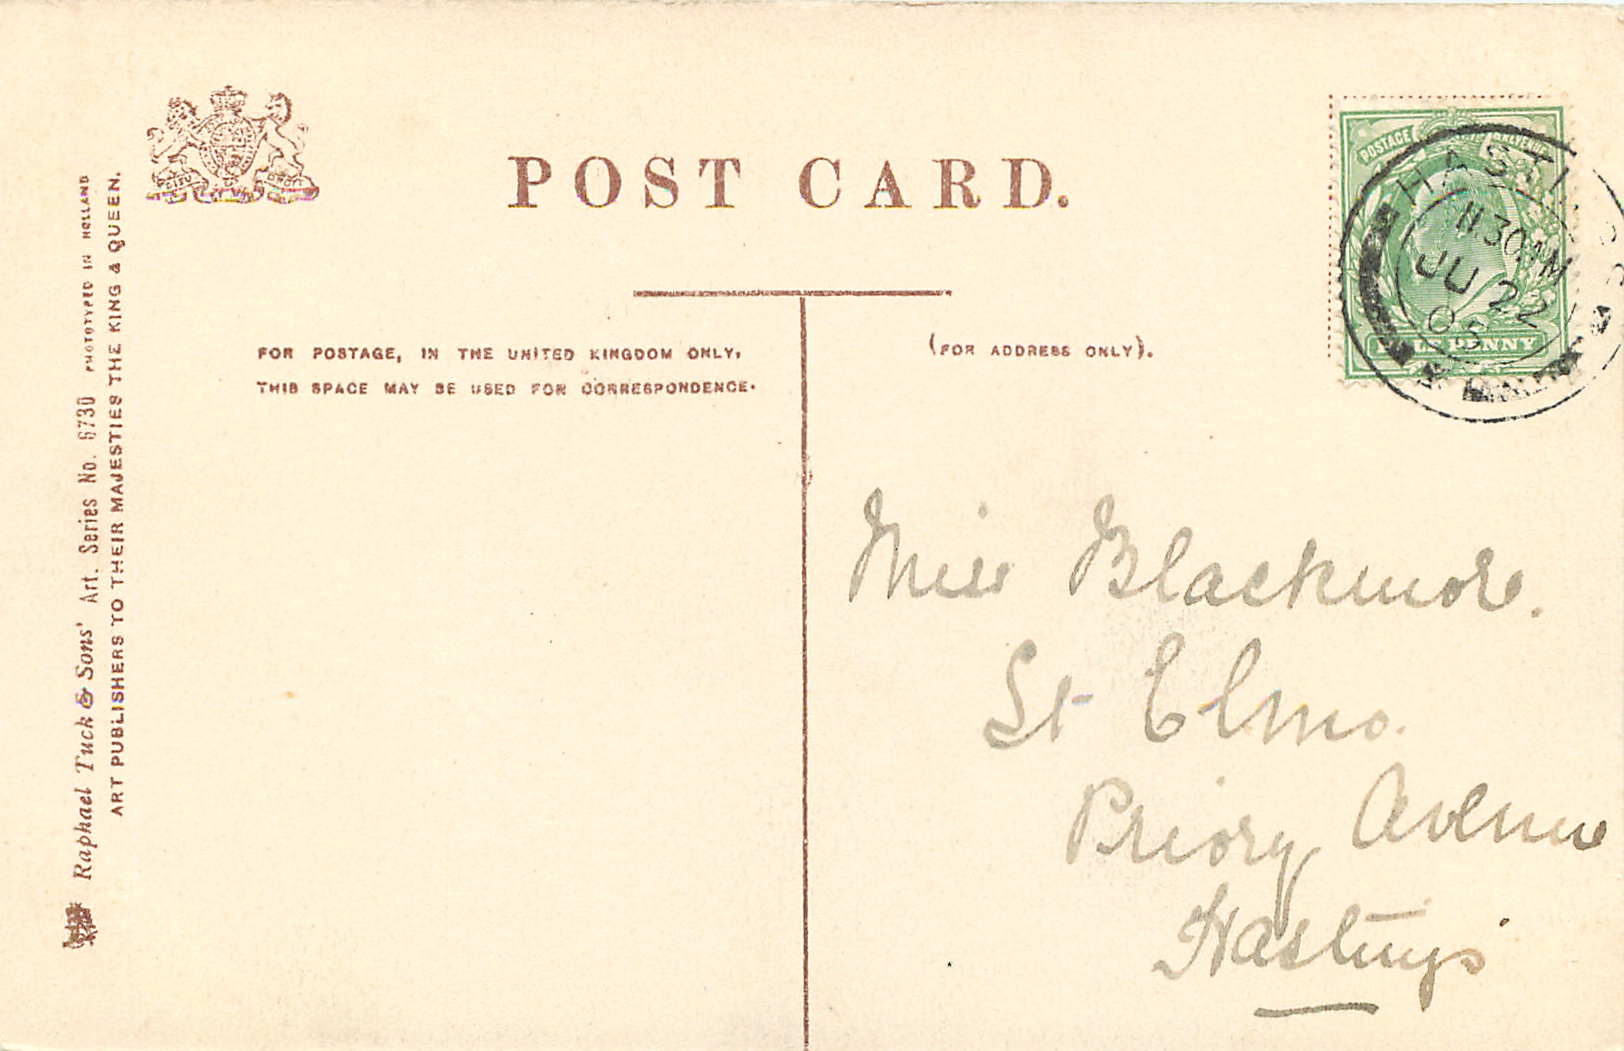 POST CARD.
FOR POSTAGE, IN THE UNITED KINGDOM ONLY,
THIS SPACE MAY BE USED FOR CORRESPONDENCE.
(FOR ADDRESS ONLY).
Raphael Tuck & Sons' Art. Series No. 6730 PHOTOTYPED IN HOLLAND
ART PUBLISHERS TO THEIR MAJESTIES THE KING & QUEEN.
DIEU DROIT
POSTAGE REVENUE
HALFPENNY
HASTI
11 30 AM
JU 22
05
Miss Blackmore.
St Elmo.
Priory Avenue
Hastings